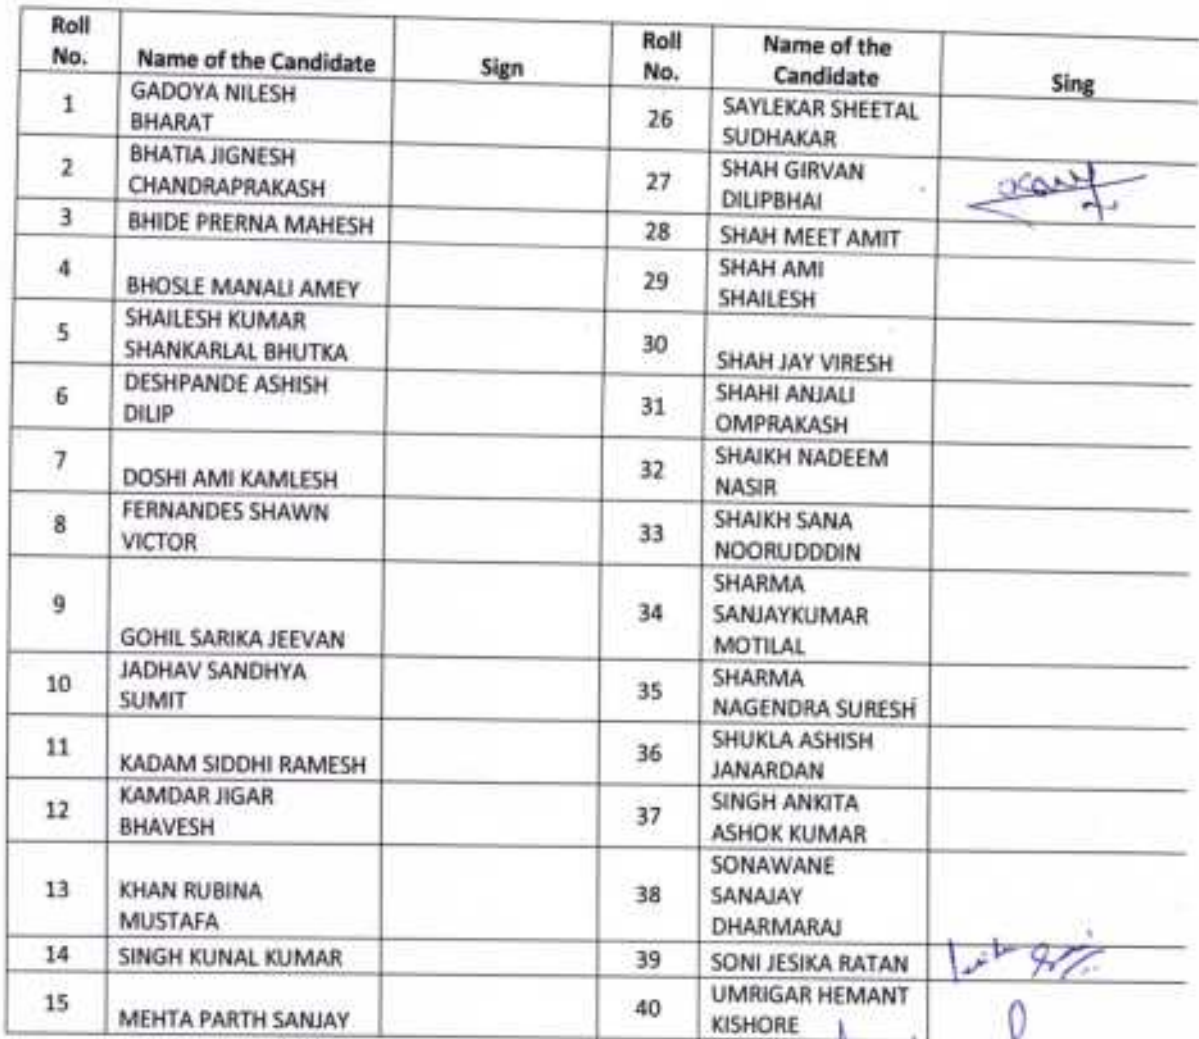 Roll No. Name of the Candidate Sign Roll No. Name of the Candidate Sing
1 GADOYA NILESH BHARAT 26 SAYLEKAR SHEETAL SUDHAKAR
2 BHATIA JIGNESH CHANDRAPRAKASH 27 SHAH GIRVAN DILIPBHAI
3 BHIDE PRERNA MAHESH 28 SHAH MEET AMIT
4 BHOSLE MANALI AMEY 29 SHAH AMI SHAILESH
5 SHAILESH KUMAR SHANKARLAL BHUTKA 30 SHAH JAY VIRESH
6 DESHPANDE ASHISH DILIP 31 SHAHI ANJALI OMPRAKASH
7 DOSHI AMI KAMLESH 32 SHAIKH NADEEM NASIR
8 FERNANDES SHAWN VICTOR 33 SHAIKH SANA NOORUDDDIN
9 GOHIL SARIKA JEEVAN 34 SHARMA SANJAYKUMAR MOTILAL
10 JADHAV SANDHYA SUMIT 35 SHARMA NAGENDRA SURESH
11 KADAM SIDDHI RAMESH 36 SHUKLA ASHISH JANARDAN
12 KAMDAR JIGAR BHAVESH 37 SINGH ANKITA ASHOK KUMAR
13 KHAN RUBINA MUSTAFA 38 SONAWANE SANAJAY DHARMARAJ
14 SINGH KUNAL KUMAR 39 SONI JESIKA RATAN
15 MEHTA PARTH SANJAY 40 UMRIGAR HEMANT KISHORE